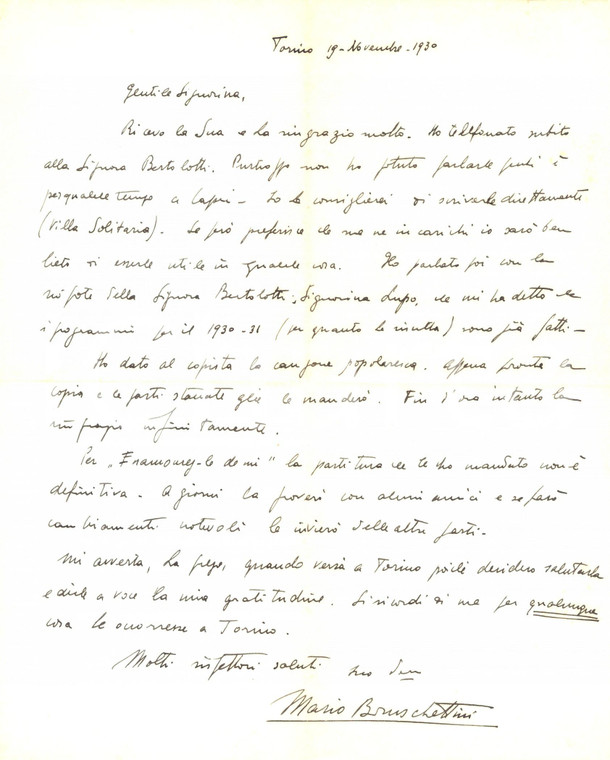 Torino 19-Novembre-1930
Gentile Signorina,
Ricevo la Sua e La ringrazio molto. Ho telefonato subito
alla Signora Bertolotti. Purtroppo non ho potuto parlarle perché è
per qualche tempo a Capri - Io Le consiglierei di scriverle direttamente
(Villa Solitaria). Se però preferisce che me ne incarichi io sarò ben
lieto di esserle utile in qualche cosa. Ho parlato poi con la
nipote della Signora Bertolotti, Signorina Lupo, che mi ha detto che
i programmi per il 1930-31 (per quanto le risulta) sono già fatti -
Ho dato al copista la canzone popolaresca. Appena pronta la
copia e le parti staccate glie le manderò. Fin d'ora intanto La
ringrazio infinitamente.
Per " de mi" la partitura che Le ho mandato non è
definitiva. A giorni la proverò con alcuni amici e se farò
cambiamenti notevoli Le invierò delle altre parti -
Mi avverta, La prego, quando verrà a Torino poiché desidero salutarla
e dirle a voce la mia gratitudine. Si ricordi di me per qualunque
cosa Le occorresse a Torino.
Molti rispettosi saluti suo
Mario Bruschettini